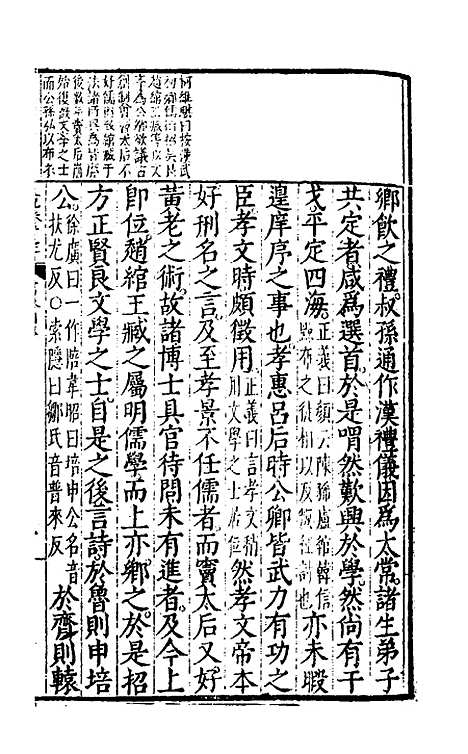 鄉飲之禮叔孫通作漢禮儀因爲太常諸生弟子
共定者咸爲選首於是喟然歎興於學然尚有干
戈平定四海正義曰顏云陳豨盧綰韓信黥布之徒相次反叛征討也亦未暇
遑庠序之事也孝惠呂后時公卿皆武力有功之
臣孝文時頗徵用正義曰言孝文稍用文學之士居位然孝文帝本
好刑名之言及至孝景不任儒者而竇太后又好
黃老之術故諸博士具官待問未有進者及今上
卽位趙綰王臧之屬明儒學而上亦鄉之於是招
方正賢良文學之士自是之後言詩於魯則申培
公徐廣曰一作陪韋昭曰培申公名音扶尤反○索隱曰鄒氏音普來反於齊則轅
柯維騏曰按漢武
趙綰王臧等以文
學爲公卿欲議古
太后不
好儒術綰臧于
後數年竇太后崩
始復徵文學之士
而公孫弘以布衣